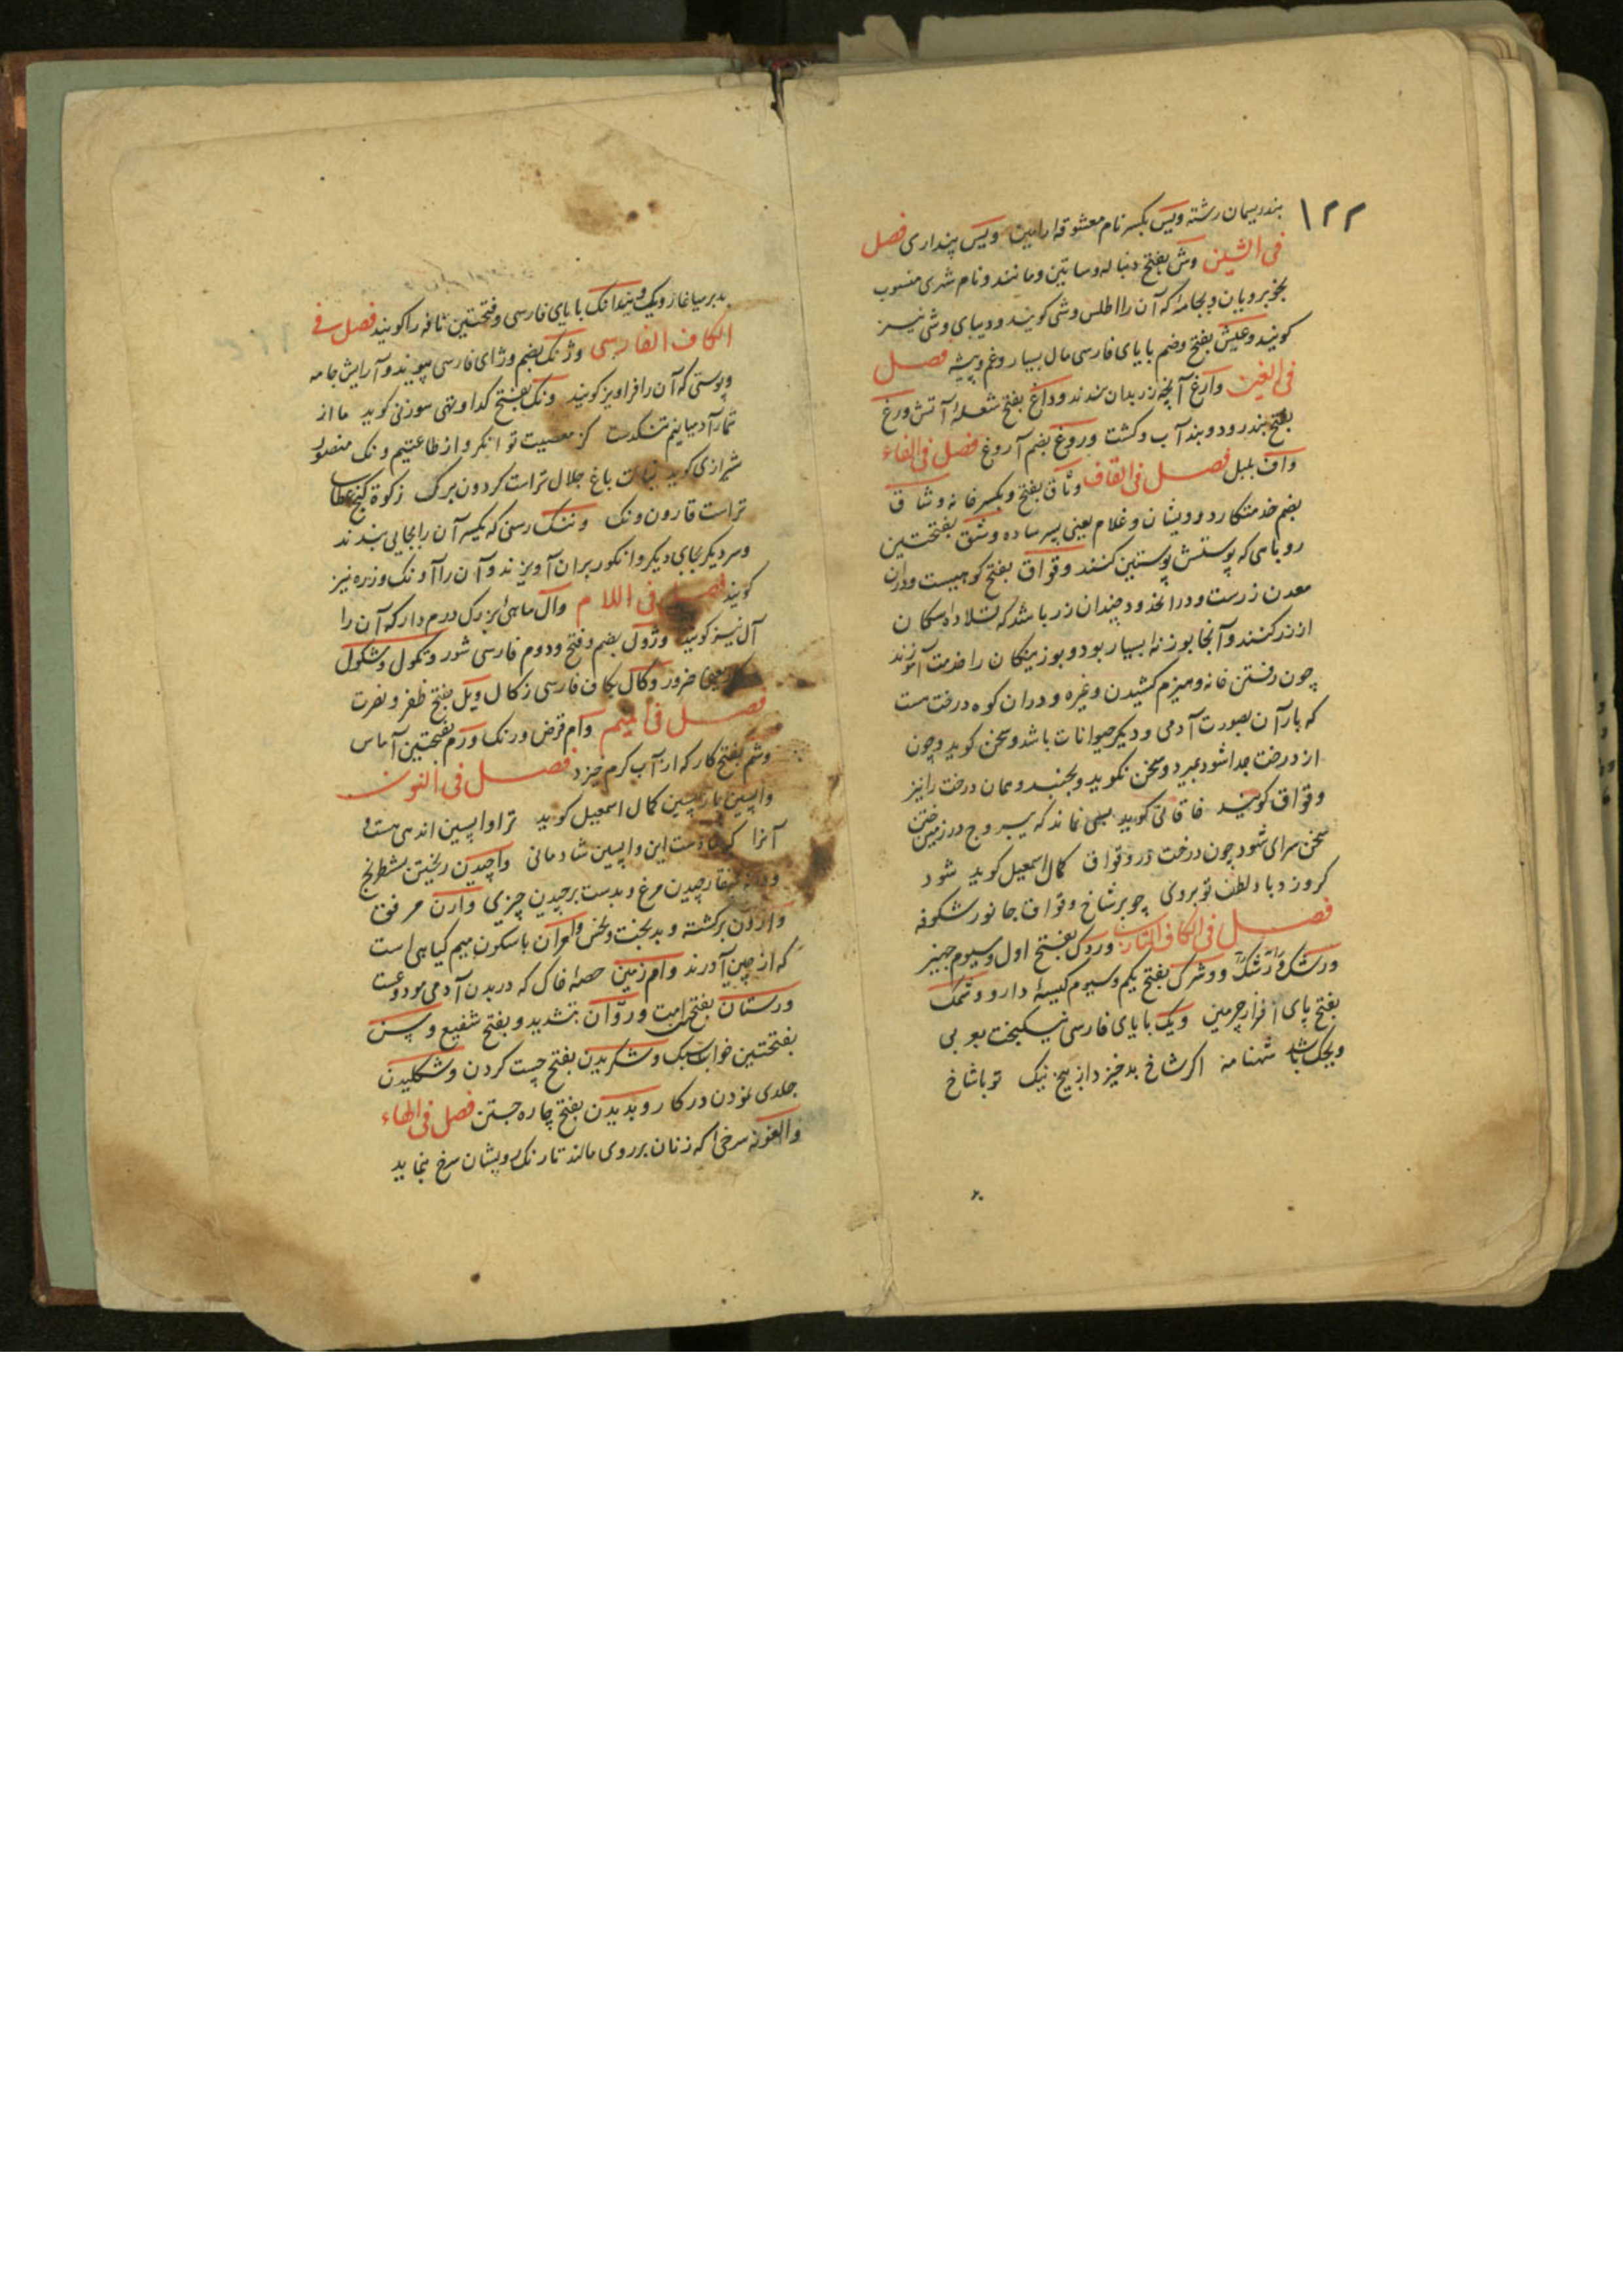 ۱۲۲
بندریسمان رشته ویس بکسر نام معشوقه رامین ویس پنداری فصل
فی الشین وش بفتح دنباله وساتین ومانند ونام شهری منسوب
بخوبرویان وبجامه که آن را اطلس وشی کویند ودیبای وشی نیز
کویند بفتح وضم با یای فارسی مال بسیار وغم وپیشه فصل
فی الغین وارغ آنچه زر بدان بندند ووداغ بفتح شعله آتش ورغ
بفتح بند رود وبند آب وکشت وروغ بضم آروغ فصل فی الفاء
واف بلبل فصل فی القاف وثاق بفتح وبکسر خانه وشاق
بضم خدمتکار درویشان وغلام یعنی پسر ساده وشق بفتحتین
روباهی که پوستش پوستین کنند وقواق بفتح کوهیست ودران
معدن زرست ودرانحدود چندان زر باشد که قلاده سکان
از زر کنند وآنجا بوزنه بسیار بود وبوزینکان را خدمت آموزند
چون رفتن خانه وهیزم کشیدن وغیره ودران کوه درخت هست
که بار آن بصورت آدمی ودیکر حیوانات باشد وسخن کوید وچون
از درخت جدا شود بمیرد وسخن نکوید ونجنبد وهمان درخت را نیز
وقواق کویند خاقانی کوید بسی نماند که بیروح در زمین ختن
سخن سرای شود چون درخت در وقواق کمال اسمعیل کوید شود
کر وزد باد لطف تو بروی چو بر شاخ وقواق جانور شکوفه
فصل فی الکاف التازی وردک بفتح اول وسیوم جهیز
ورشک ودشک وورشرک بفتح یکم وسیوم کیسهٔ دارو وتمک
بفتح پای افزار چرمین ویک با یای فارسی نیکبخت بو بی
ویحک باشد شهنامه اکر شاخ بد خیزد از بیخ نیک تو با شاخ
بد بر میاغاز ویک ویندانک با یای فارسی وفتحتین نافه را کویند فصل فی
الکاف الفارسی وژنک بضم وزای فارسی پیوند وآرایش جامه
وپوستی که آن را فراویز کویند ونک بفتح کدا وتهی سوزنی کوید ما از
شمار آدمیانیم تنکدست کز معصیت توانکر واز طاعتیم ونک منصور
شیرازی کوید نبات باغ جلال تراست کردون برک زکوة کنج عطای
تراست قارون ونک وننک رسنی که یکسر آن را بجایی بندند
وسر دیکر بجای دیکر وانکور بران آویزند وآن را آونک وزره نیز
کویند فصل فی اللام وال ماهیٔ بزرک درم دار که آن را
آل نیز کویند وژول بضم وفتح ودوم فارسی شور وتکول وشکول
ضرور وکال بکاف فارسی زکال ویل بفتح ظفر ونصرت
فصل فی المیم وام قرض ورنک ورم بفتحتین آماس
وشم بفتح کار که از آب کرم خیزد فصل فی النون
واپسین بازپسین کمال اسمعیل کوید ترا واپسین اندهی هست
آنرا این واپسین شادمانی واچیدن ریختن شطرنج
بمنقار چیدن مرغ وبدست برچیدن چیزی وارن مرفق
واژون برکشته وبدبخت ونحس باسکون میم کیاهی است
که از چین آورند وام زمین حصهٔ خاک که در بدن آدمی مودوعست
ورستان بفتح امت وروان بتشدید وبفتح شفیع وپسن
بفتحتین خواب سبک وشکریدن بفتح چست کردن وشکلیدن
جلدی نمودن در کار وبدیدن بفتح چاره جستن فصل فی الهاء
والغونه سرخی که زنان بر روی مالند تا رنک رویشان سرخ نماید